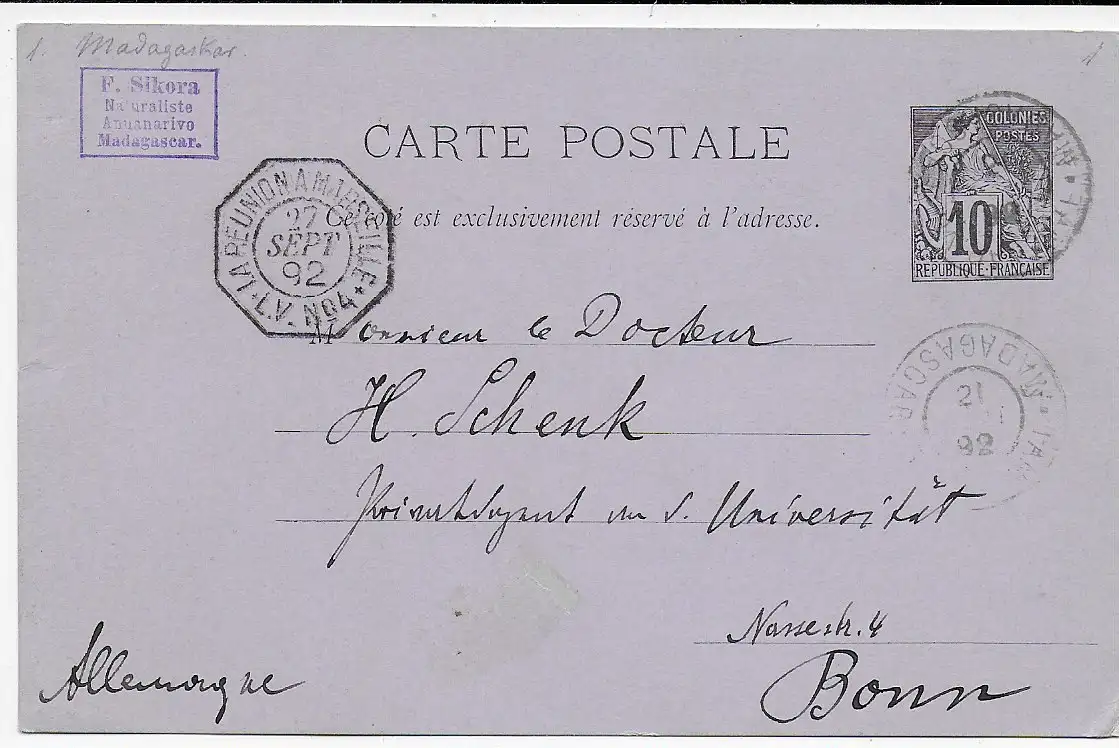 1. Madagaskar.
1
F. Sikora
Naturaliste
Annanarivo
Madagascar.
CARTE POSTALE
Ce côté est exclusivement réservé à l'adresse.
COLONIES
POSTES
10
REPUBLIQUE FRANÇAISE
LA REUNION A MARSEILLE
27
SEPT
92
L.V. No4
Monsieur le Docteur
H. Schenk
MADAGASCAR
21
92
Privatdozent an d. Universität
Nassestr. 4
Bonn
Allemagne